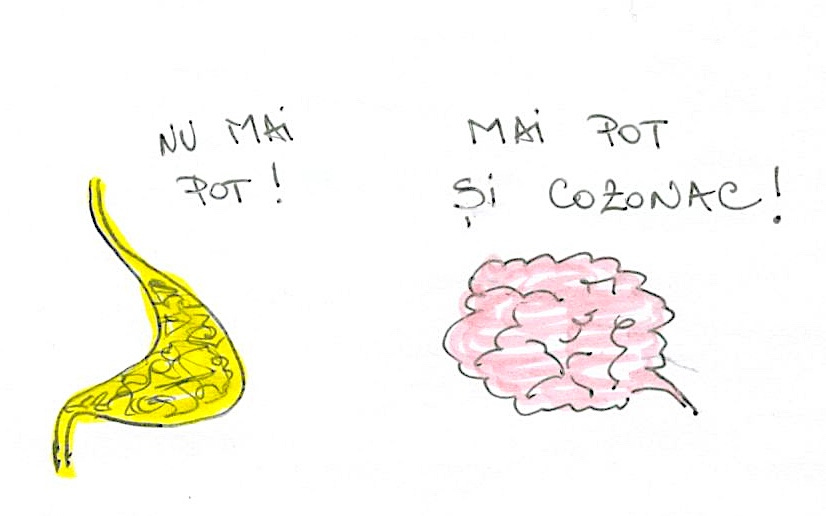 NU MAI
POT!
MAI POT
ȘI COZONAC!